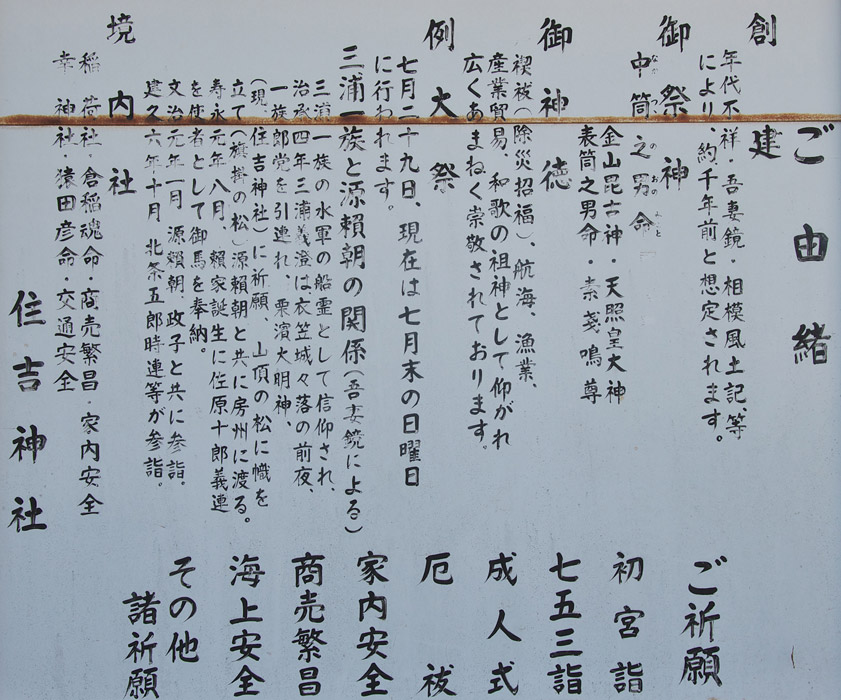 ご由緒
創建
年代不祥・吾妻鏡・相模風土記等
により、約千年前と想定されます。
御祭神
中筒之男命
なかつつのおのみこと
金山毘古神・天照皇大神
表筒之男命・素戔鳴尊
御神徳
禊祓(除災招福)、航海、漁業、
産業貿易、和歌の祖神として仰がれ
広くあまねく崇敬されております。
例大祭
七月二十九日、現在は七月末の日曜日
に行われます。
三浦一族と源頼朝の関係(吾妻鏡による)
三浦一族の水軍の船霊として信仰され、
治承四年三浦義澄は衣笠城々落の前夜、
一族郎党を引連れ、栗濱大明神、
(現住吉神社)に祈願、山頂の松に幟を
立て(旗掛の松)源頼朝と共に房州に渡る。
寿永元年八月、頼家誕生に佐原十郎義連
を使者として御馬を奉納。
文治元年一月源頼朝、政子と共に参詣。
建久六年十月北条五郎時連等が参詣。
境内社
稲荷社・倉稲魂命・商売繁昌・家内安全
幸神社・猿田彦命・交通安全
住吉神社
ご祈願
初宮詣
七五三詣
成人式
厄祓
家内安全
商売繁昌
海上安全
その他
諸祈願